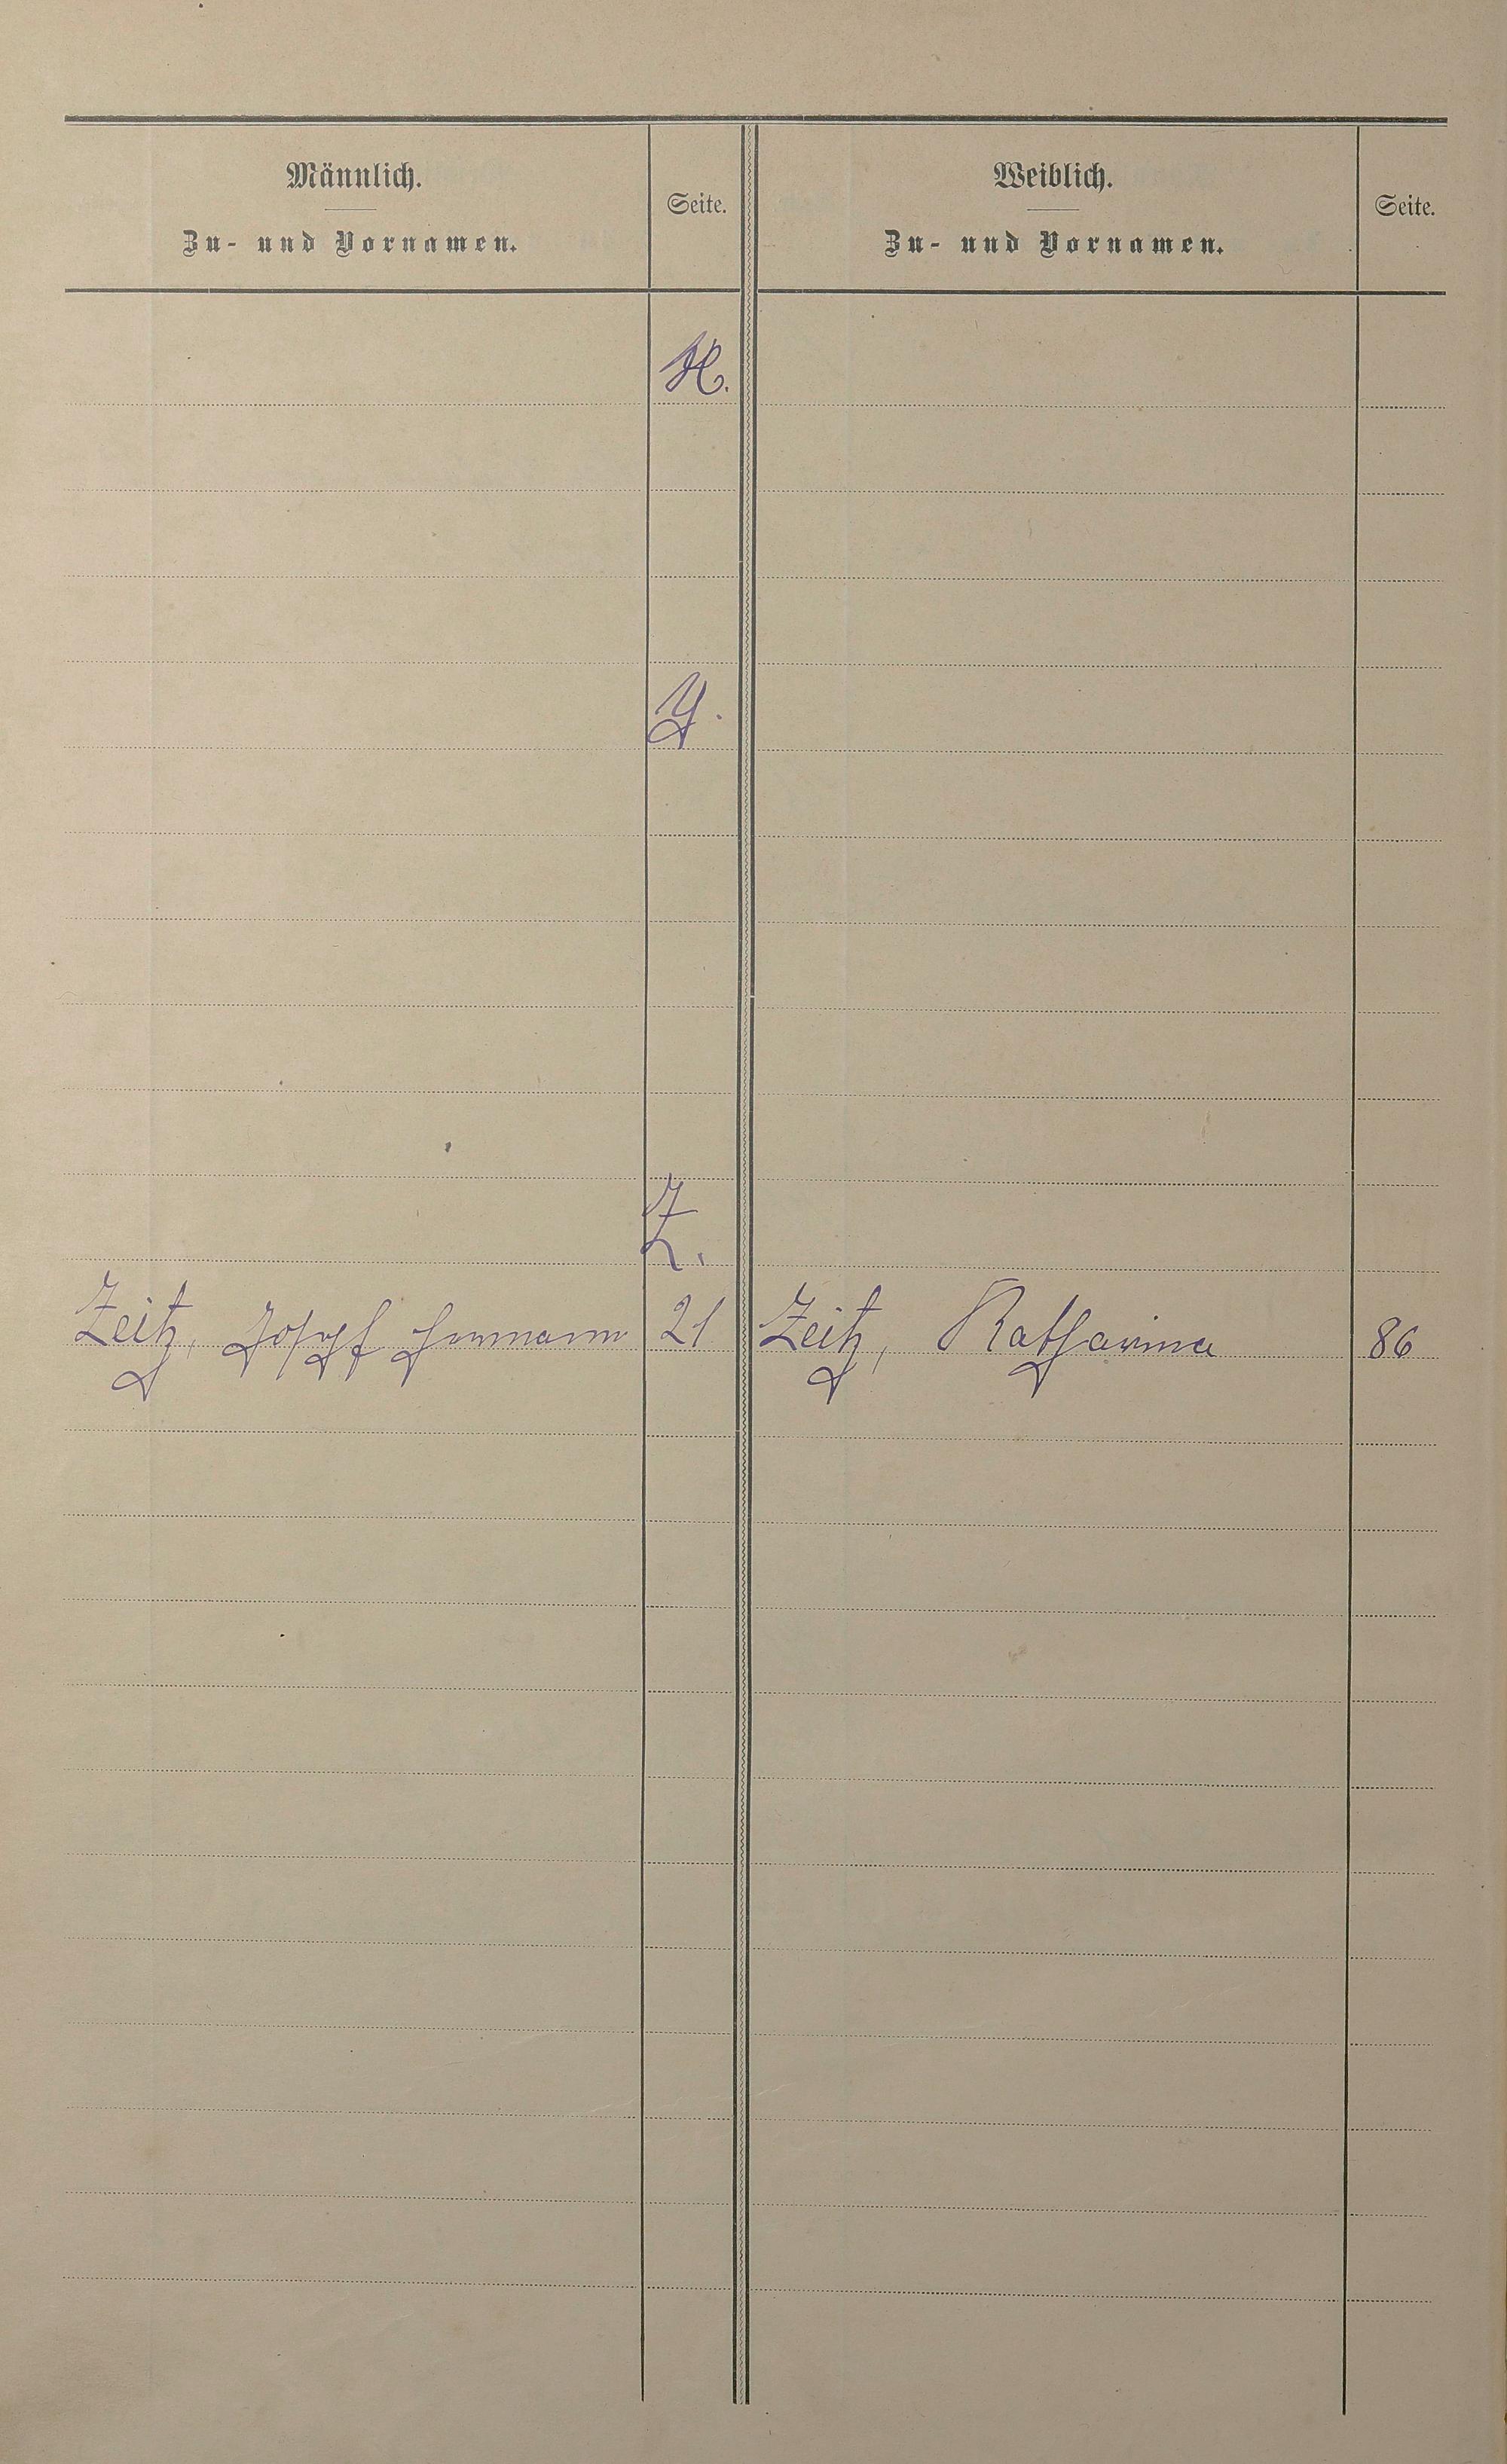 Männlich.
Zu- und Vornamen.
Seite.
Weiblich.
Zu- und Vornamen.
Seite.
X.
Y.
Z.
Zeitz, Josef Hermann 21 Zeitz, Katharina 86